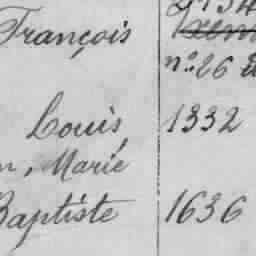 François
no. 26
Louis, 1332
n, Marie
Baptiste 1636